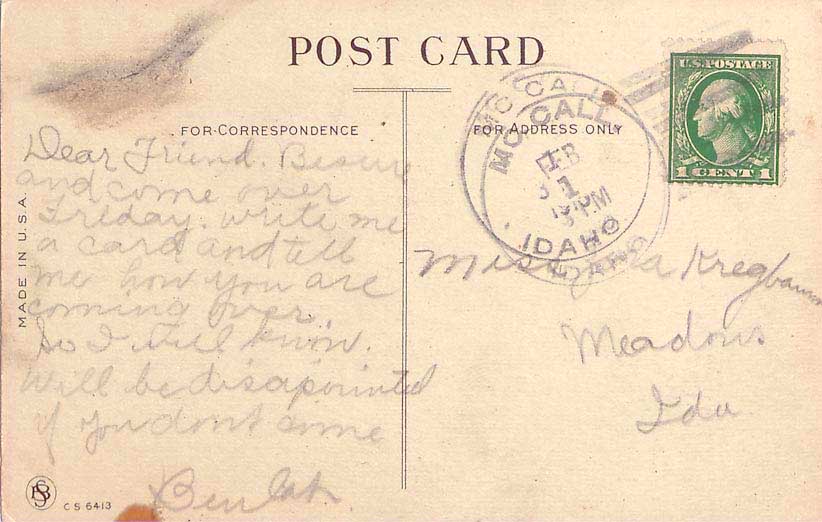 POST CARD
U.S. POSTAGE
1 CENT 1
FOR CORRESPONDENCE
FOR ADDRESS ONLY
MC CALL
MC CALL
FEB
1
PM
IDAHO
IDAHO
MADE IN U.S.A.
Dear Friend. Besure
and come over
Friday. write me
a card and tell
me how you are
coming over.
So I will know.
Will be disapointed
if you dont come
Beulah.
Miss Kregbaum
Meadows
Ida
CS 6413